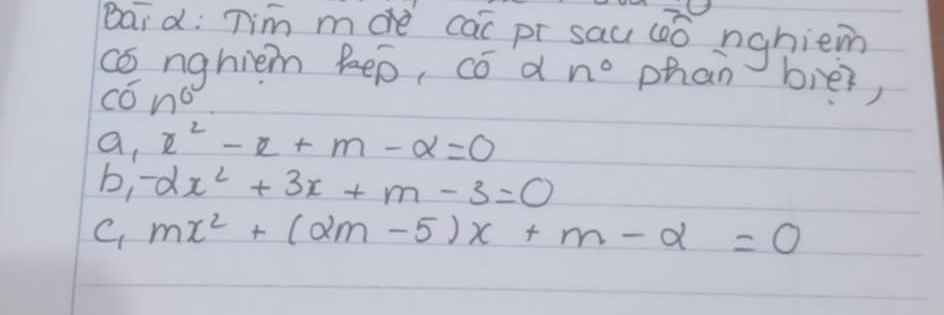 Bài 2: Tìm m để các pt sau vô nghiệm
có nghiệm kép, có 2 n⁰ phân biệt,
có n⁰
a, x² - x + m - 2 = 0
b, -2x² + 3x + m - 3 = 0
c, mx² + (2m - 5)x + m - 2 = 0